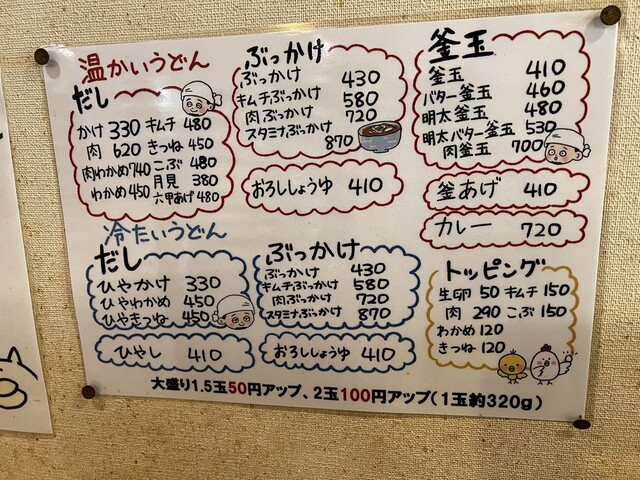 温かいうどん
だし
かけ 330 キムチ 480
肉 620 きつね 450
肉わかめ 740 こぶ 480
わかめ 450 月見 380
六甲あげ 480
ぶっかけ
ぶっかけ 430
キムチぶっかけ 580
肉ぶっかけ 720
スタミナぶっかけ
870
おろししょうゆ 410
釜玉
釜玉 410
バター釜玉 460
明太釜玉 480
明太バター釜玉 530
肉釜玉 700
釜あげ 410
カレー 720
冷たいうどん
だし
ひやかけ 330
ひやわかめ 450
ひやきつね 450
ひやし 410
ぶっかけ
ぶっかけ 430
キムチぶっかけ 580
肉ぶっかけ 720
スタミナぶっかけ 870
おろししょうゆ 410
トッピング
生卵 50 キムチ 150
肉 290 こぶ 150
わかめ 120
きつね 120
大盛り1.5玉50円アップ、2玉100円アップ(1玉約320g)